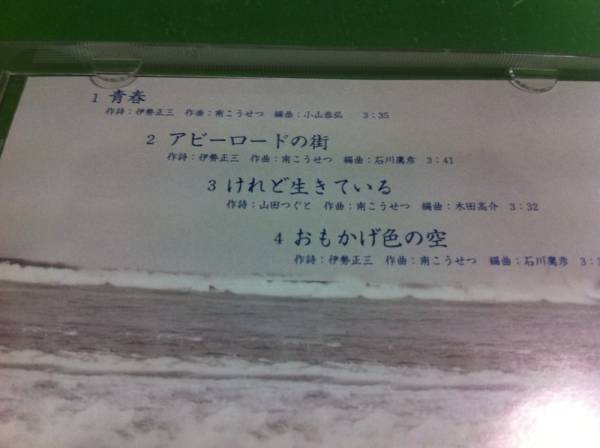 1 青春
作詩：伊勢正三 作曲：南こうせつ 編曲：小山恭弘 3：35
2 アビーロードの街
作詩：伊勢正三 作曲：南こうせつ 編曲：石川鷹彦 3：41
3 けれど生きている
作詩：山田つぐと 作曲：南こうせつ 編曲：木田高介 3：32
4 おもかげ色の空
作詩：伊勢正三 作曲：南こうせつ 編曲：石川鷹彦